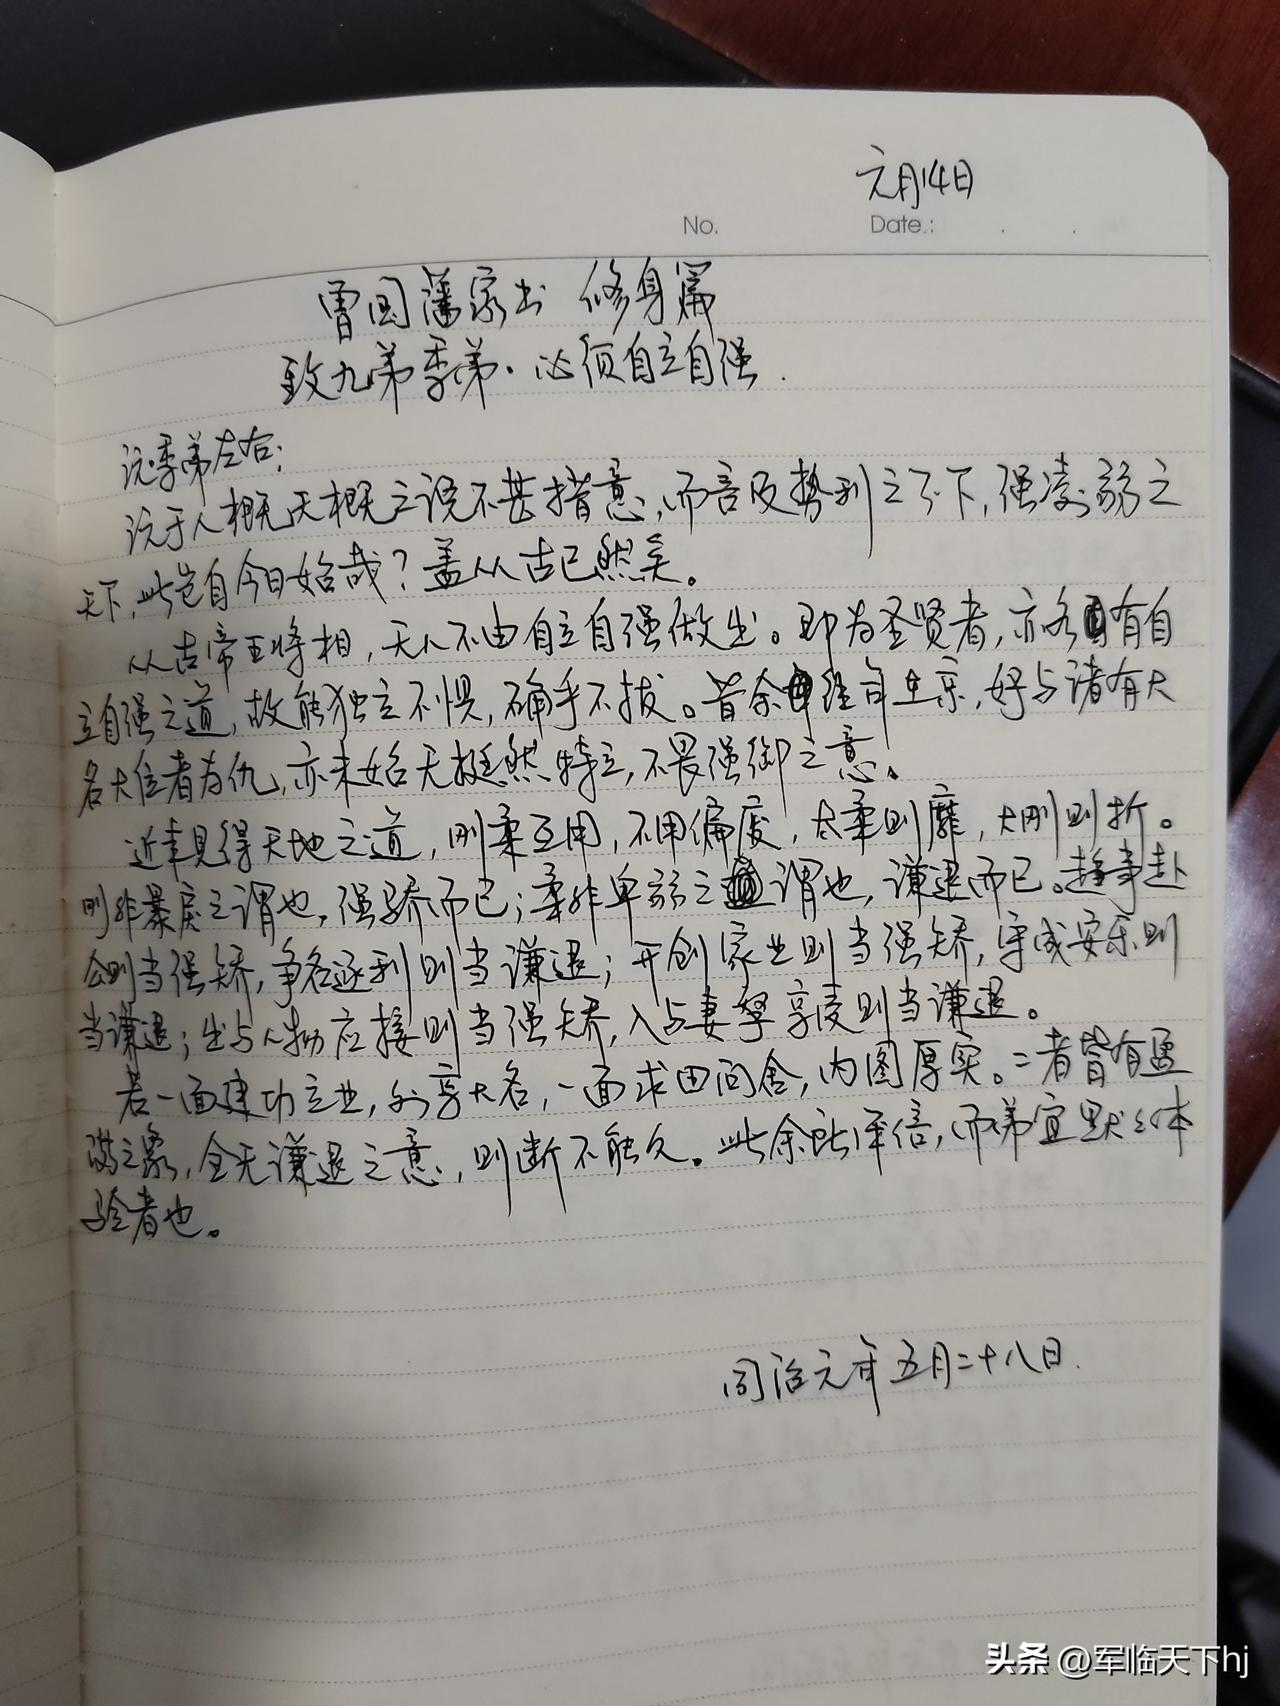 元月14日
No.
Date.:
曾国藩家书 修身篇
致九弟季弟·必须自立自强.
沅季弟左右;
沅于人概天概之说不甚措意,而言及势利之天下,强凌弱之
天下,此岂自今日始哉?盖从古已然矣。
从古帝王将相,无人不由自立自强做出。即为圣贤者,亦各有自
立自强之道,故能独立不惧,确乎不拔。昔余往年在京,好与诸有大
名大位者为仇,亦未始无挺然特立,不畏强御之意。
近来见得天地之道,刚柔互用,不可偏废,太柔则靡,太刚则折。
刚非暴戾之谓也,强矫而已;柔非卑弱之谓也,谦退而已。趋事赴
公则当强矫,争名逐利则当谦退;开创家业则当强矫,守成安乐则
当谦退;出与人物应接则当强矫,入与妻孥享受则当谦退。
若一面建功立业,外享大名,一面求田问舍,内图厚实。二者皆有盈
满之象,全无谦退之意,则断不能久。此余所深信,而弟宜默默体
验者也。
同治元年五月二十八日.
头条 @军临天下hj